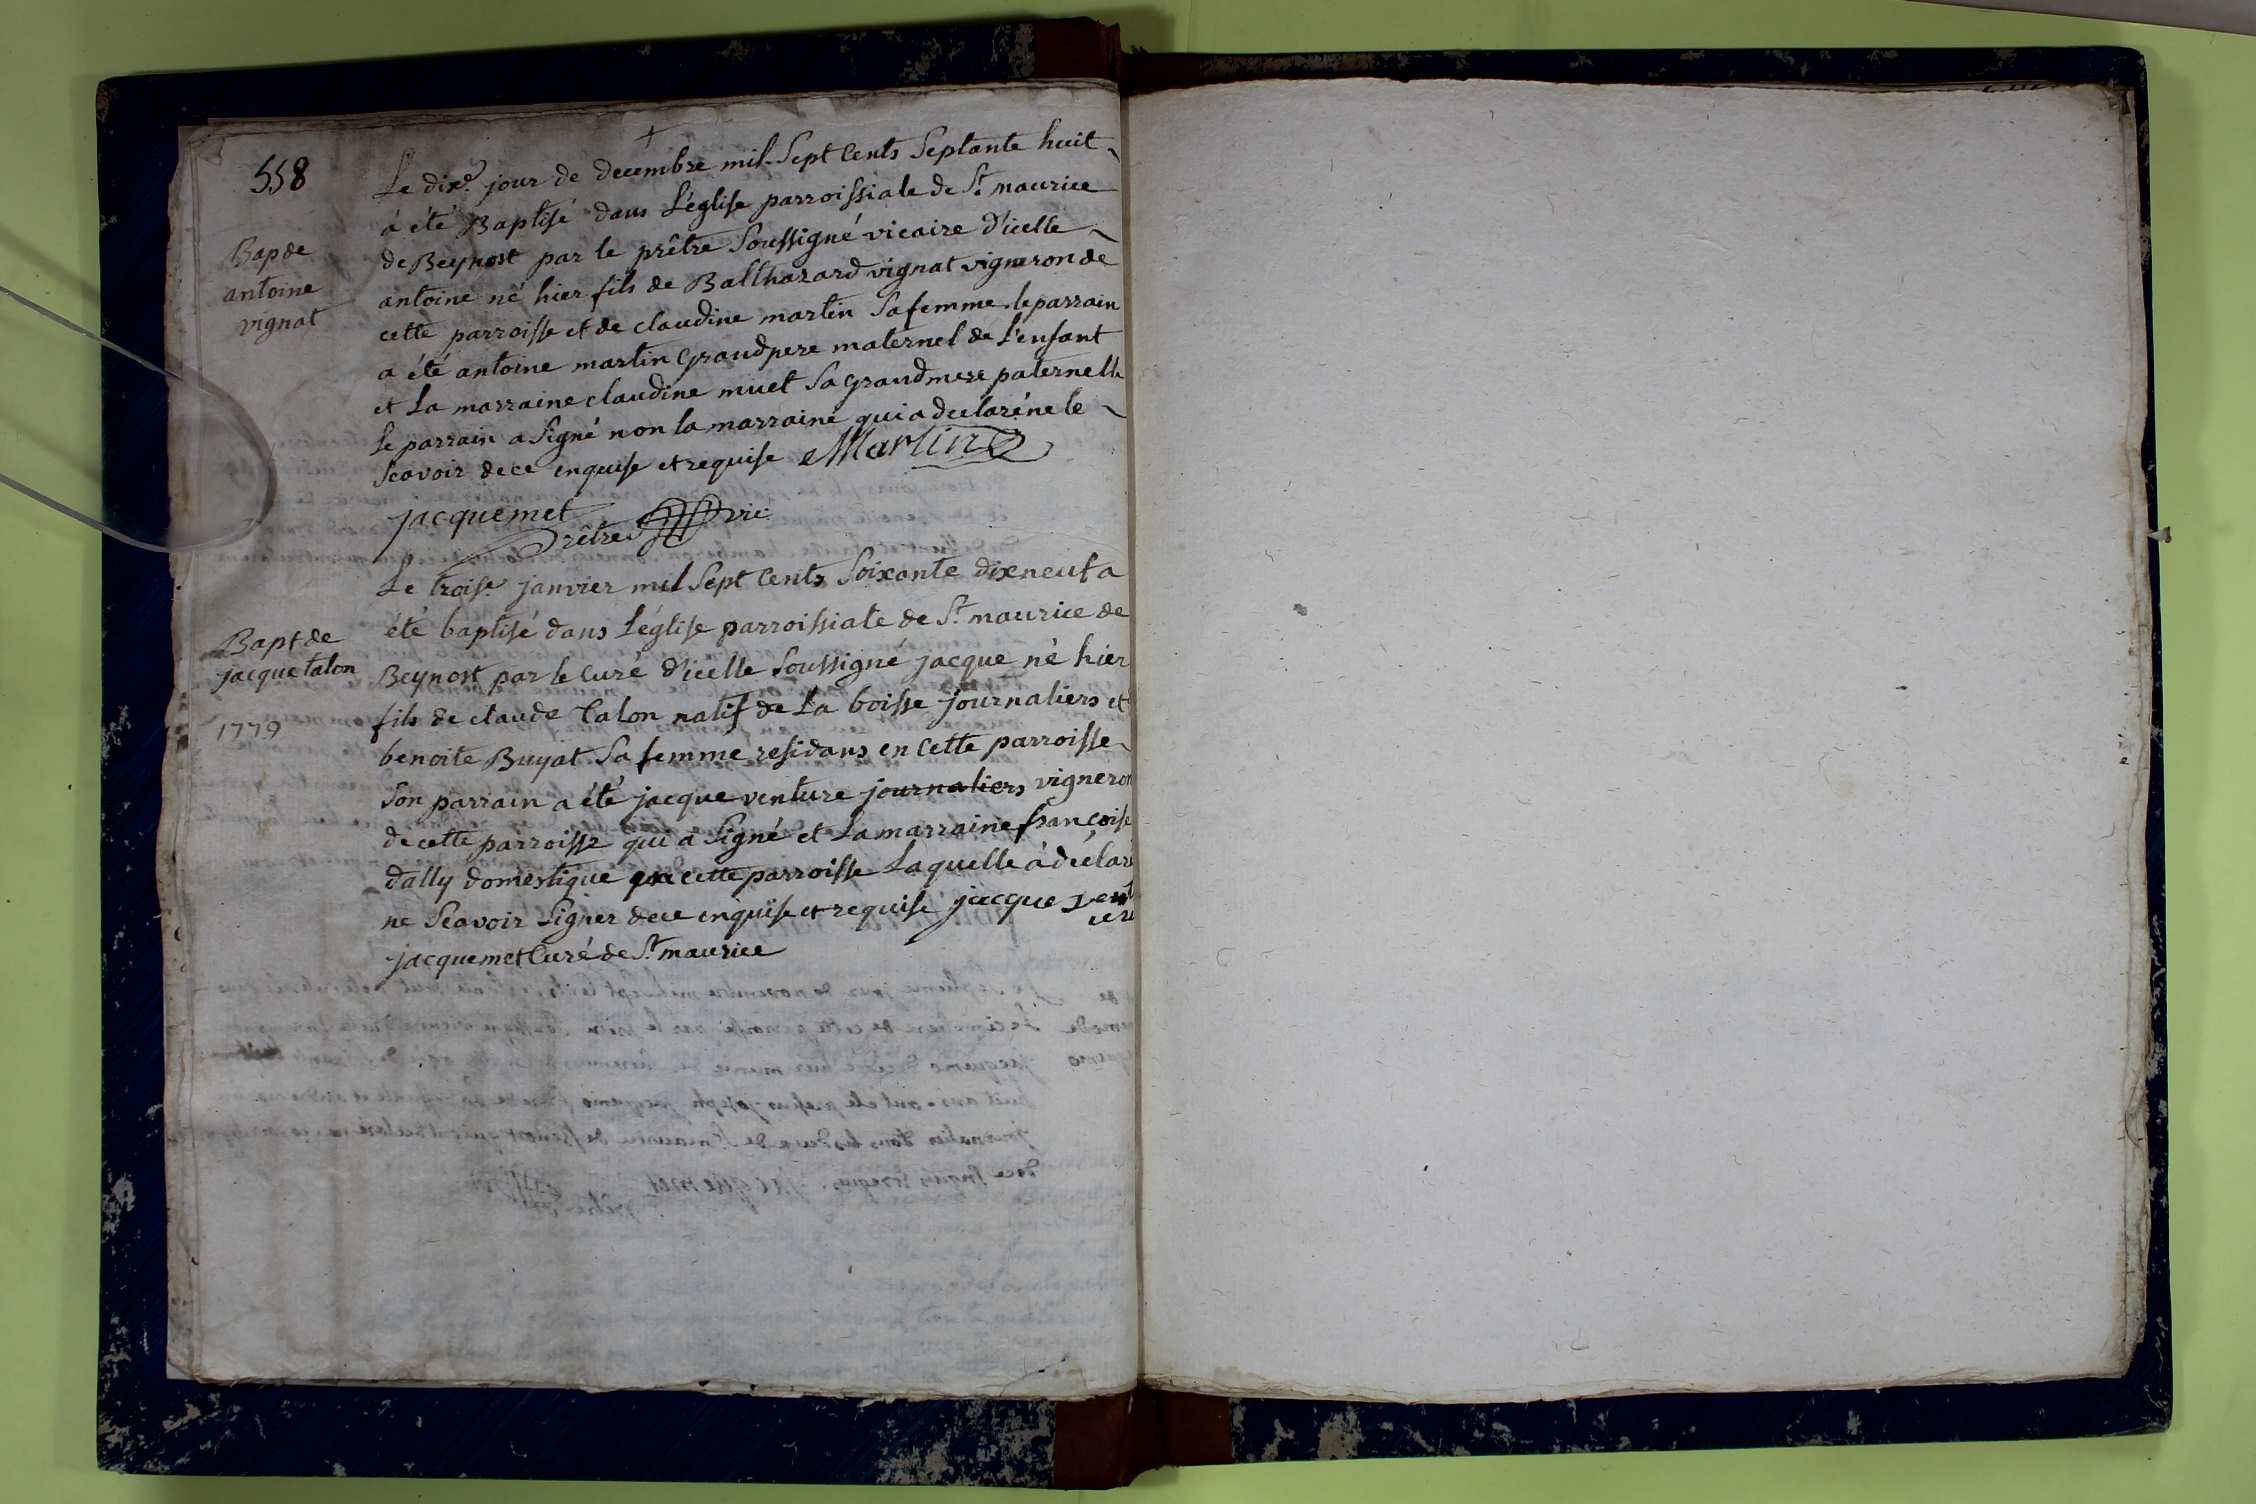 558
Le dixe. jour de decembre mil Sept Cents Septante huit
à été Baptisé dans L'église parroissiale de St. maurice
de Beynost par le prêtre Soussigné vicaire d'icelle
Bap de
antoine
vignat
antoine né hier fils de Balthazard vignat vigneron de
cette parroisse et de claudine martin Sa femme. le parrain
a été antoine martin Grandpere maternel de L'enfant
et La marraine claudine muet Sa grandmere paternelle
Le parrain a Signé non la marraine qui a declaré ne le
Scavoir de ce enquise et requise Martin
jacquemet
Prêtre vic
Le troise. janvier mil Sept Cents Soixante dixneuf a
été baptisé dans L'église parroissiale de St. maurice de
Bapt de
jacque talon
1779
Beynost par le Curé d'icelle Soussigné jacque né hier
fils de claude talon natif de La boisse journaliers et
benoite Buyat Sa femme residans en Cette parroisse
Son parrain a été jacque venture journaliers vigneron
de cette parroisse qui a Signé et La marraine françoise
dally domestique cette parroisse Laquelle à déclaré
ne Scavoir Signer de ce enquise et requise jacque vent
ure
jacquemet Curé de St. maurice